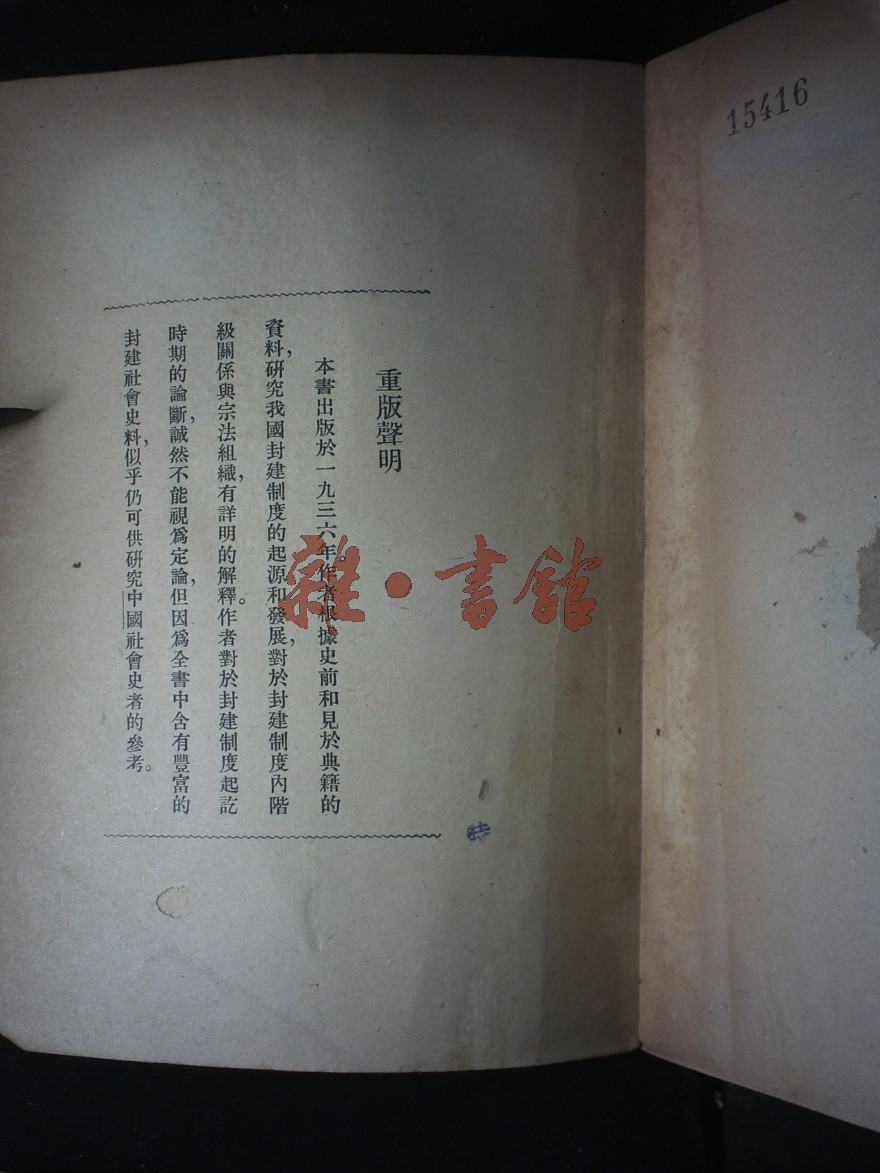 15416
重版聲明
本書出版於一九三六年。作者根據史前和見於典籍的
資料,研究我國封建制度的起源和發展,對於封建制度內階
級關係與宗法組織,有詳明的解釋。作者對於封建制度起訖
時期的論斷,誠然不能視爲定論,但因爲全書中含有豐富的
封建社會史料,似乎仍可供研究中國社會史者的參考。
雜·書館